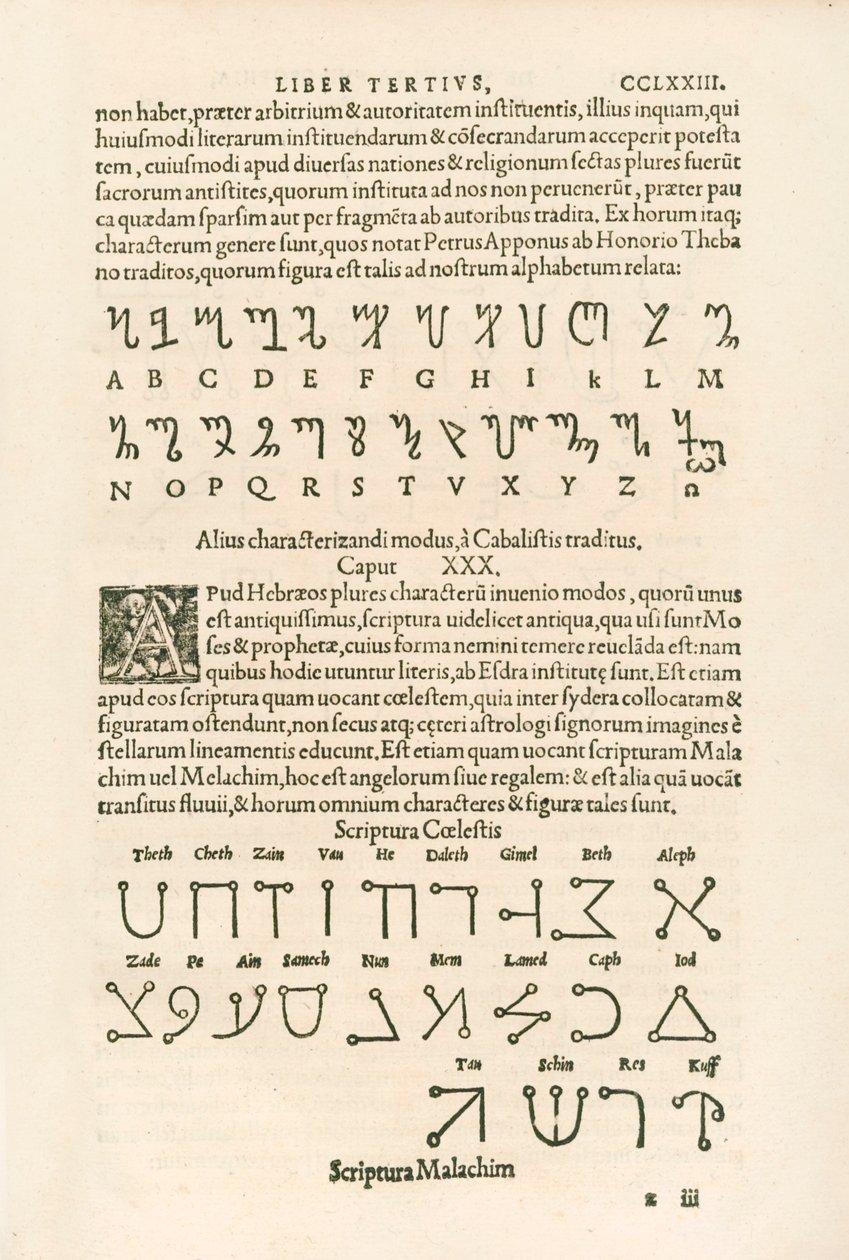 LIBER TERTIVS, CCLXXIII.
non habet,præter arbitrium & autoritatem inſtituentis, illius inquam,qui
huiuſmodi literarum inſtituendarum & cõſecrandarum acceperit poteſta
tem, cuiuſmodi apud diuerſas nationes & religionum ſectas plures fuerũt
ſacrorum antiſtites,quorum inſtituta ad nos non peruenerũt, præter pau
ca quædam ſparſim aut per fragmẽta ab autoribus tradita. Ex horum itaq;
characterum genere ſunt,quos notat Petrus Apponus ab Honorio Theba
no traditos,quorum figura eſt talis ad noſtrum alphabetum relata:
A B C D E F G H I k L M
N O P Q R S T V X Y Z Ω
Alius characterizandi modus,à Cabaliſtis traditus.
Caput XXX.
APud Hebræos plures characterũ inuenio modos, quorũ unus
eſt antiquiſſimus,ſcriptura uidelicet antiqua,qua uſi ſunt Mo
ſes & prophetæ,cuius forma nemini temere reuelãda eſt:nam
quibus hodie utuntur literis,ab Eſdra inſtitutę ſunt. Eſt etiam
apud eos ſcriptura quam uocant cœleſtem,quia inter ſydera collocatam &
figuratam oſtendunt,non ſecus atq; cęteri aſtrologi ſignorum imagines è
ſtellarum lineamentis educunt. Eſt etiam quam uocant ſcripturam Mala
chim uel Melachim,hoc eſt angelorum ſiue regalem: & eſt alia quã uocãt
tranſitus fluuii,& horum omnium characteres & figuræ tales ſunt.
Scriptura Cœleſtis
Theth Cheth Zain Vau He Daleth Gimel Beth Aleph
Zade Pe Ain Samech Nun Mem Lamed Caph Iod
Tau Schin Res Kuff
Scriptura Malachim
z iii